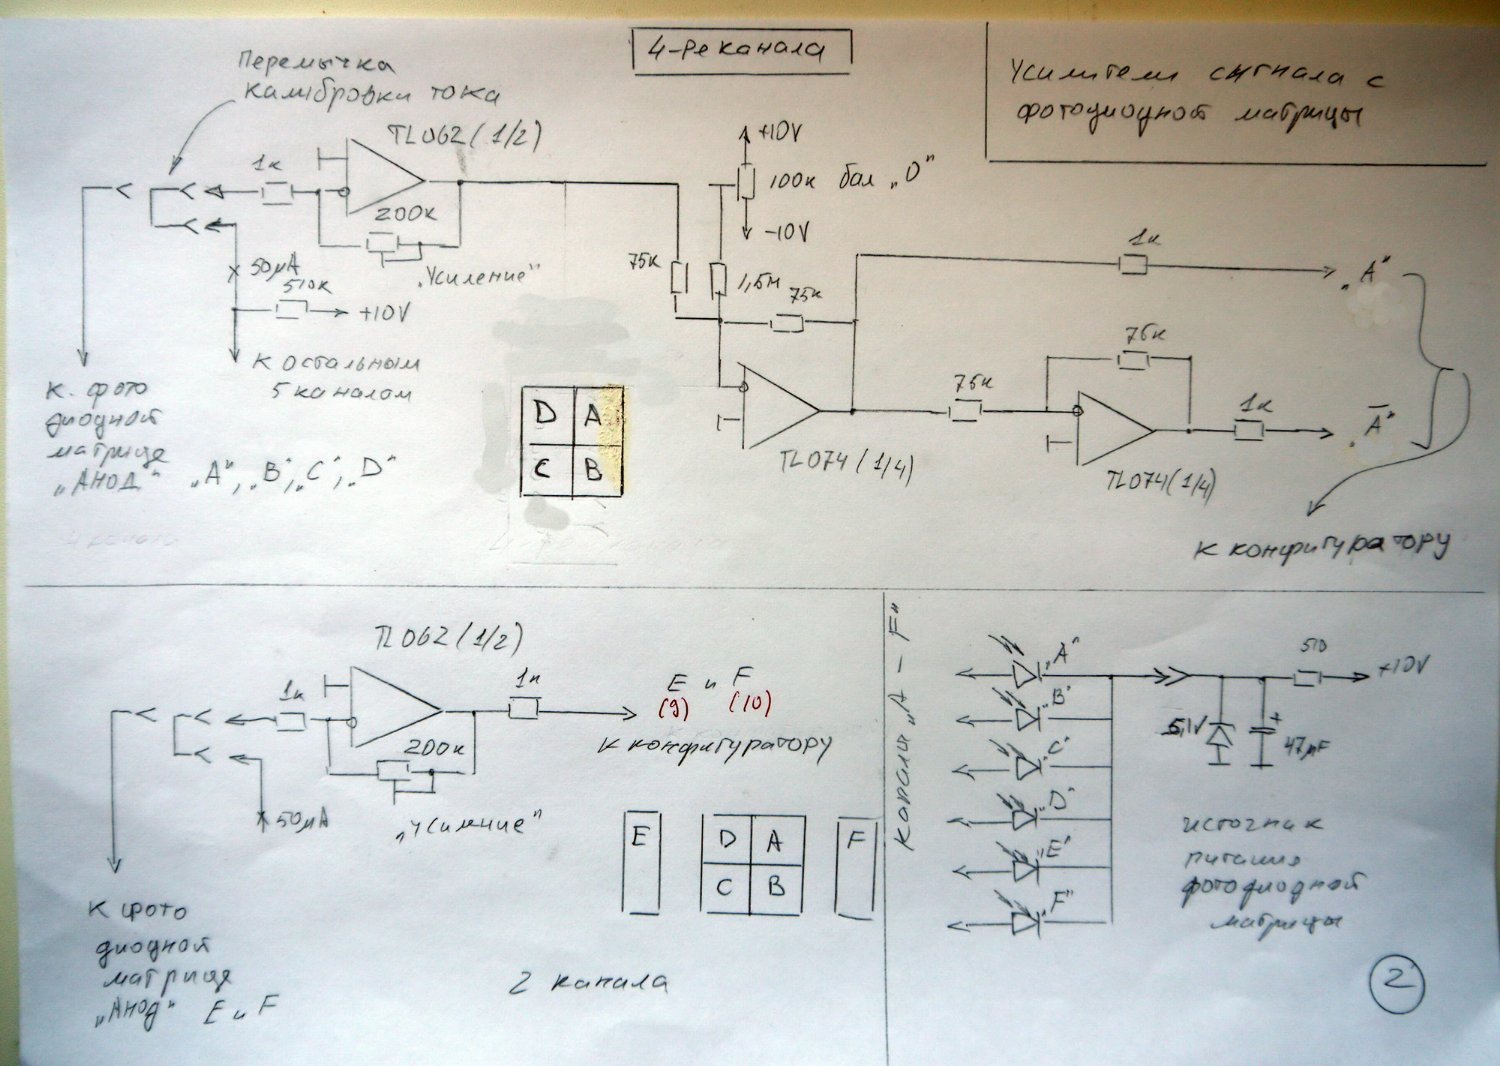 4-ре канала
Усилители сигнала с
фотодиодной матрицы
Перемычка
калибровки тока
TL062 (1/2)
1к
200к
„Усиление"
50μA
510к
+10V
К остальным
5 каналам
К фото
диодной
матрице
„Анод" „A", „B", „C", „D"
+10V
100к бал „0"
-10V
75к
1,5м
75к
D A
C B
TL074 (1/4)
75к
75к
TL074 (1/4)
1к
„A"
1к
„A̅"
К конфигуратору
TL062 (1/2)
1к
200к
„Усиление"
50μA
1к
E и F
(9) (10)
К конфигуратору
E
D A
C B
F
К фото
диодной
матрице
„Анод" E и F
2 канала
Каналы „A - F"
„A"
„B"
„C"
„D"
„E"
„F"
510
+10V
5,1V
+
47μF
источник
питания
фотодиодной
матрицы
2